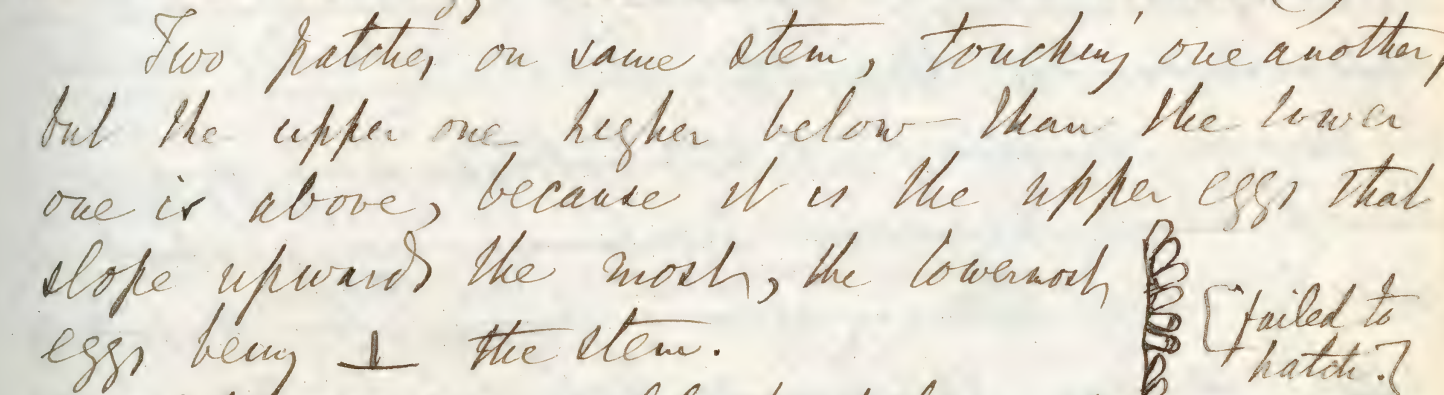 Two patches on same stem, touching one another,
but the upper one higher below than the lower
one is above, because it is the upper eggs that
slope upwards the most, the lowermost
eggs being ⊥ the stem.
[failed to
hatch.]